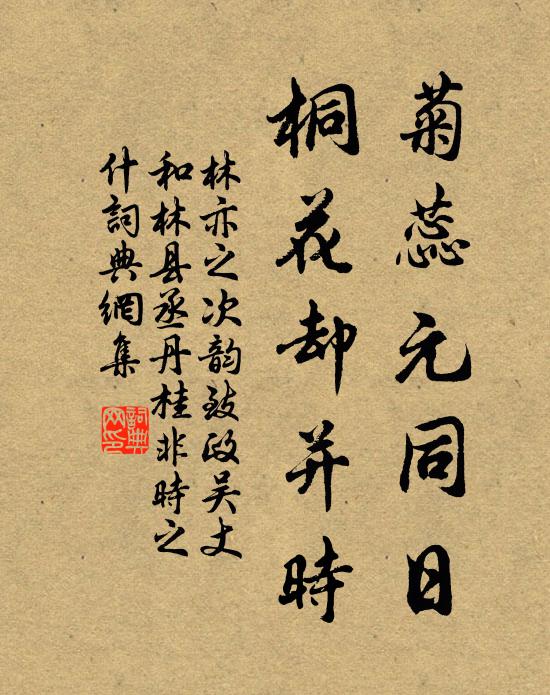 菊蕊元同日
桐花却并時
林亦之次韵致政吴丈
和林县丞丹桂非時之
什詞典網集
詞典
网印